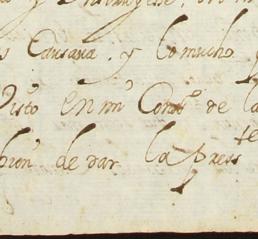 Causava. y lo mucho
Visto en mi Conso de la
de dar la presste